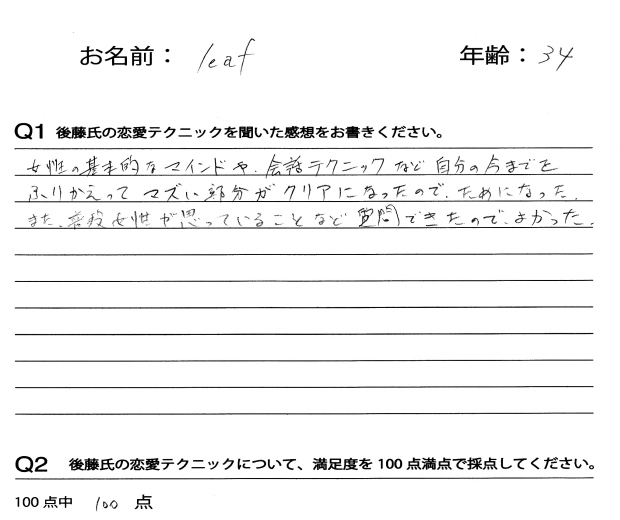 お名前： leaf 年齢：34
Q1 後藤氏の恋愛テクニックを聞いた感想をお書きください。
女性の基本的なマインドや、会話テクニックなど自分の今までを
ふりかえってマズい部分がクリアになったので、ためになった。
また、普段女性が思っていることなど質問できたので、よかった。
Q2 後藤氏の恋愛テクニックについて、満足度を100点満点で採点してください。
100点中 100 点